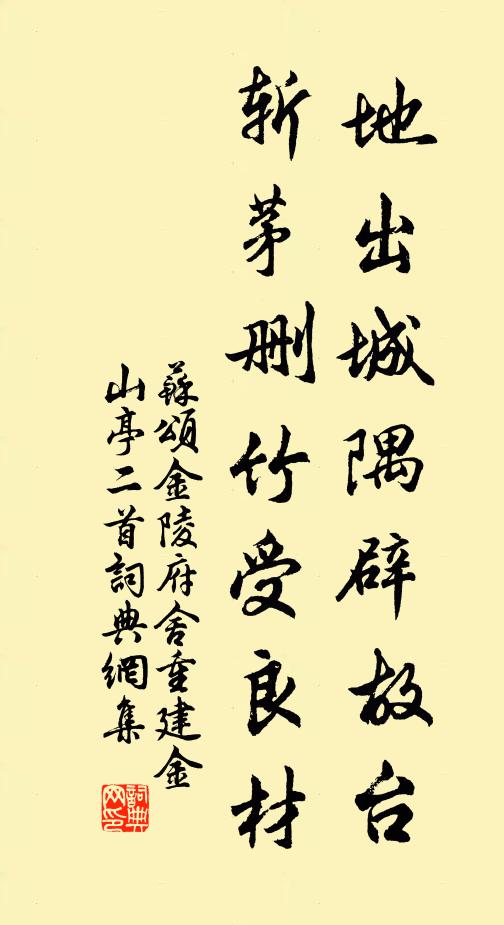 地出城隅辟故台
斩茅删竹受良材
蘇頌金陵府舍重建金
山亭二首詞典網集
詞典網印